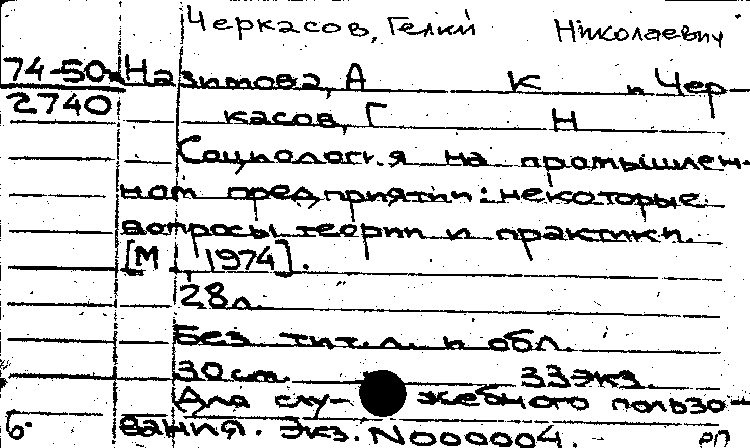 Черкасов, Гелий Николаевич
74-50 Назимова, А К и Чер-
2740 касов, Г Н
Социология на промышлен-
ном предприятии: некоторые
вопросы теории и практики.
[М., 1974].
28л.
Без тит.л. и обл.
30см. 33экз.
Для слу- жебного пользо-
6. вания. Экз. N000004. РП